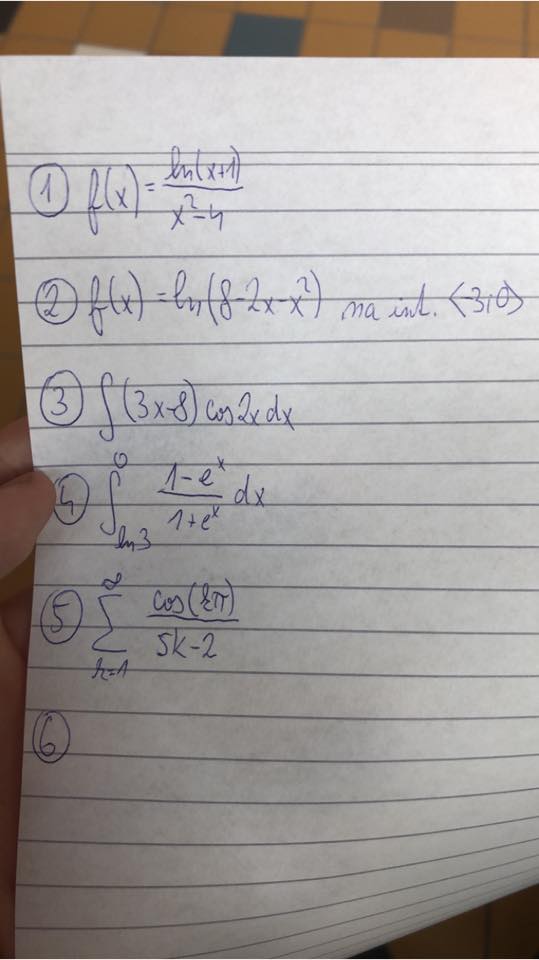 ① f(x) = ln(x+1) / (x²-4)
② f(x) = ln(8-2x-x²) na int. <-3;0>
③ ∫(3x-8) cos2x dx
④ ∫_{ln3}^{0} (1-e^x)/(1+e^x) dx
⑤ ∑_{k=1}^{∞} cos(kπ)/(5k-2)
⑥